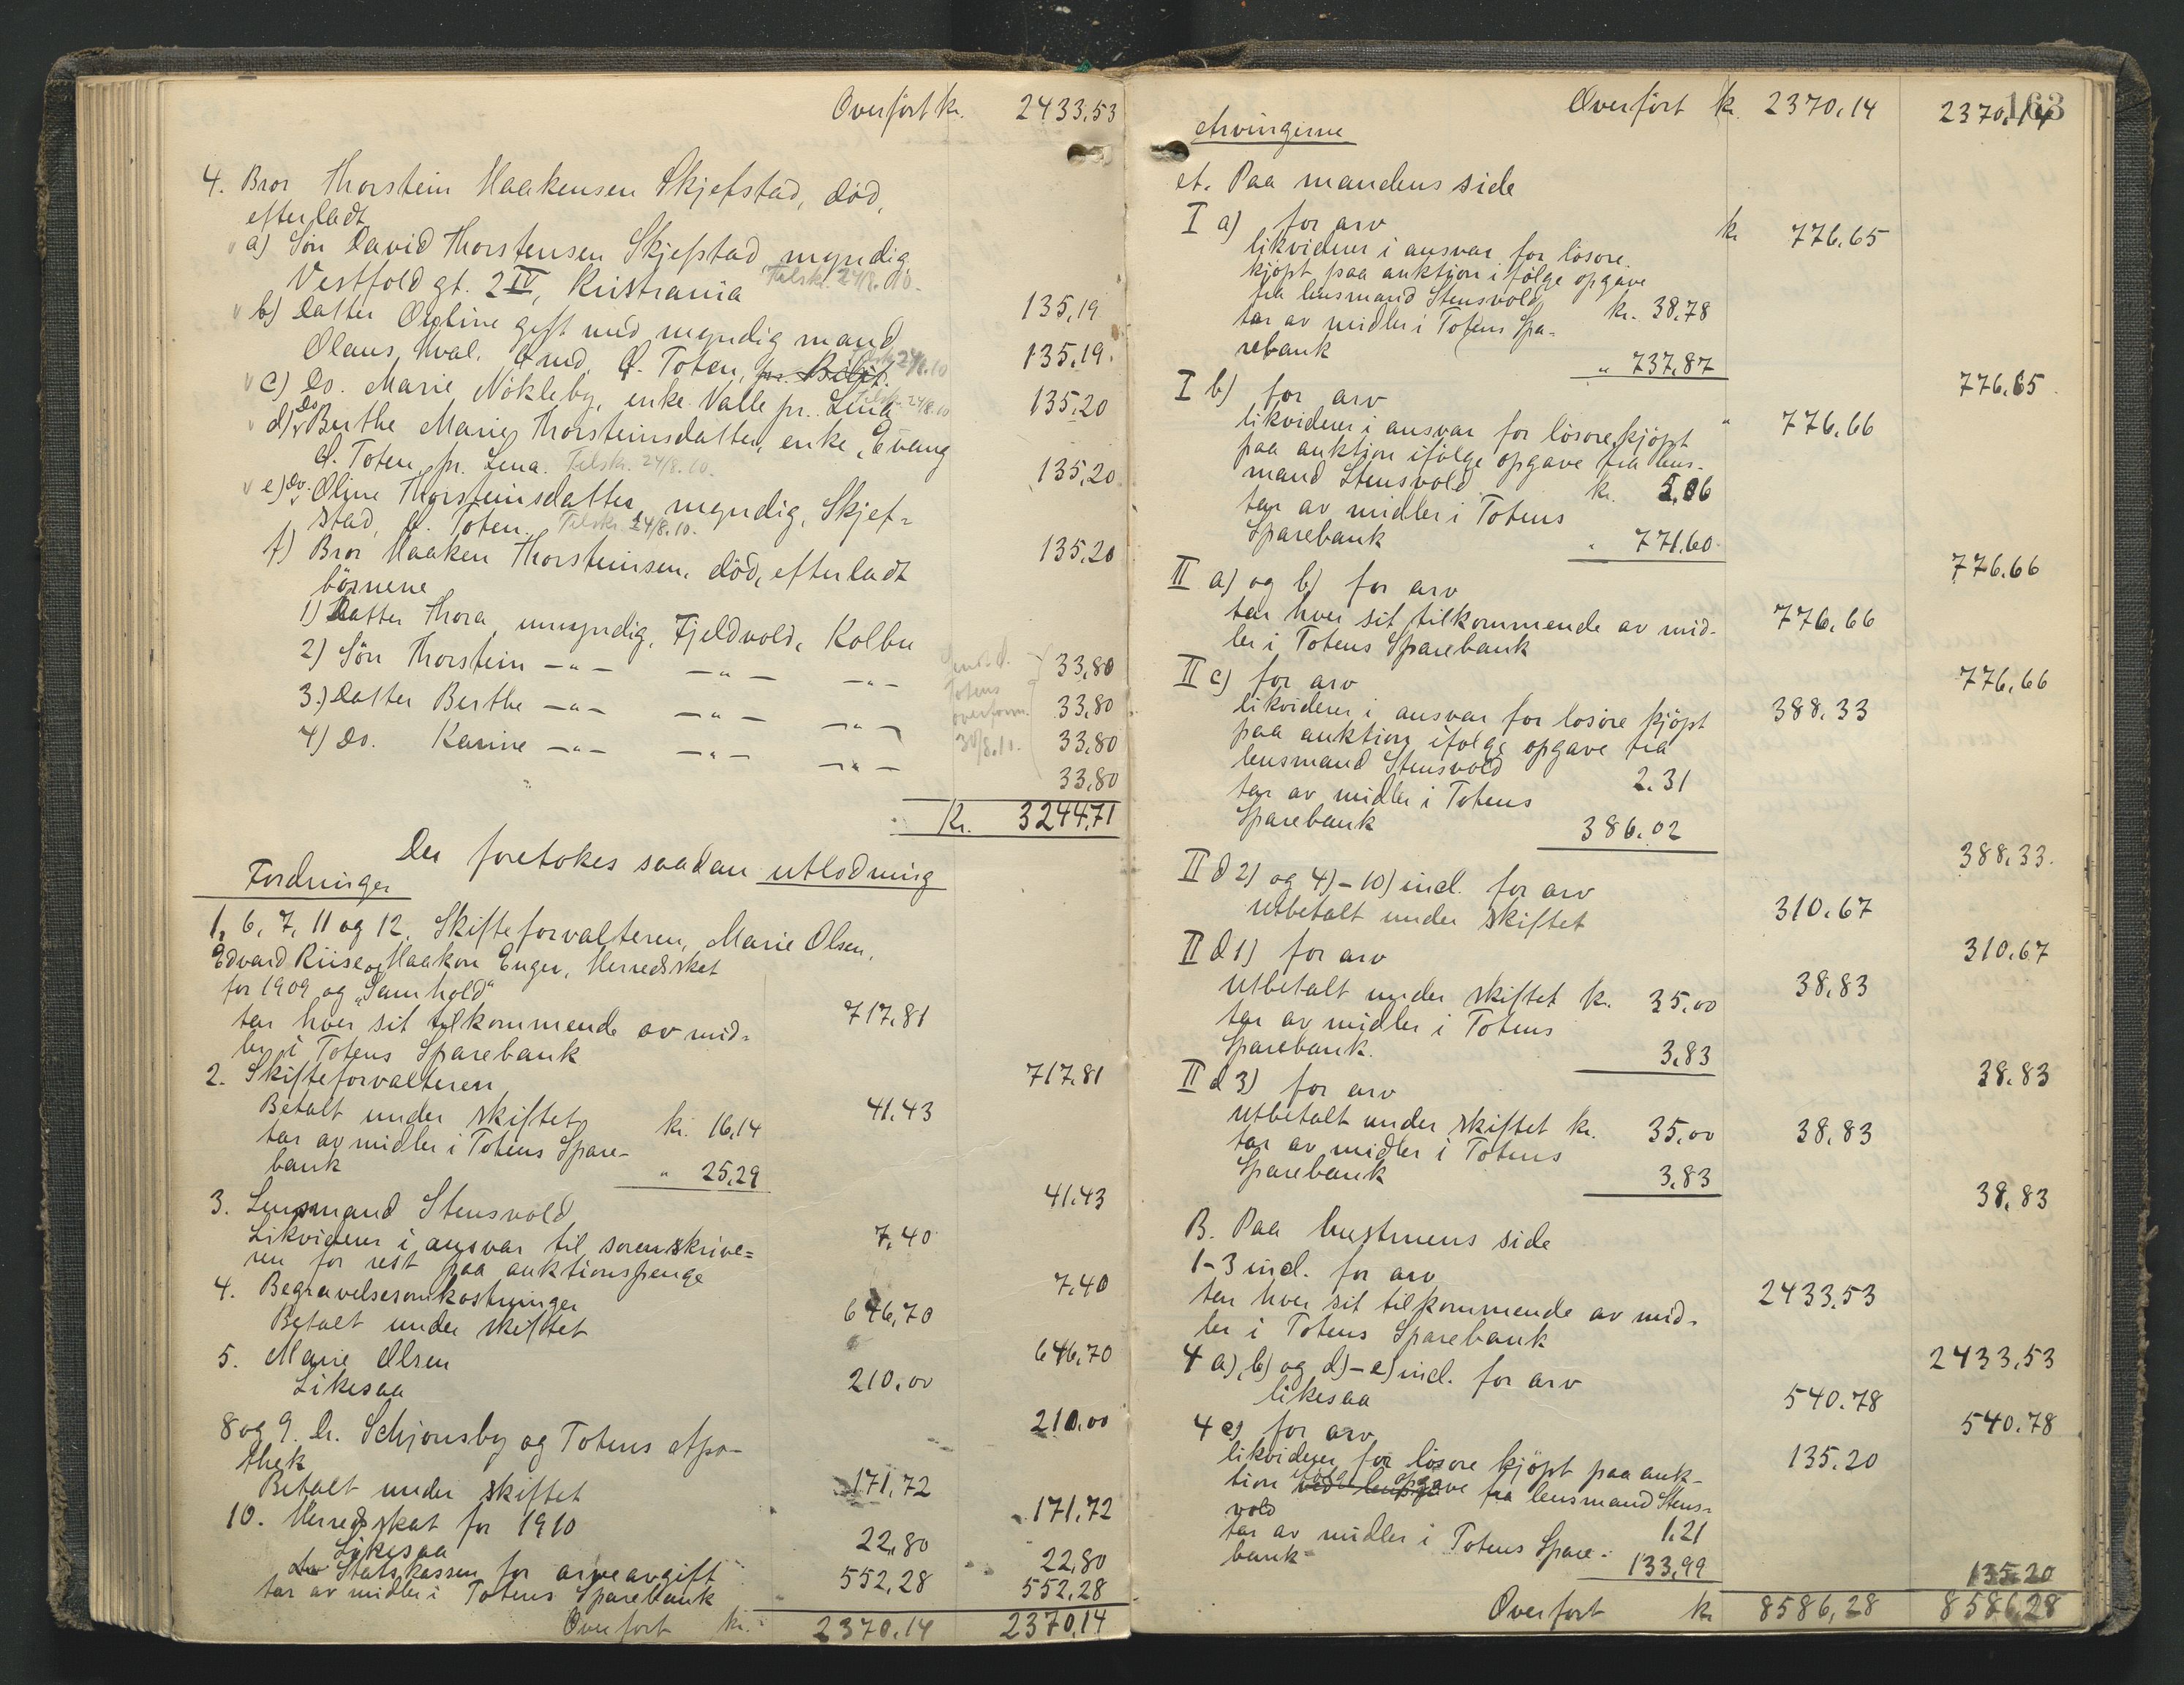 Overført kr. 2433.53
4. Bror Thorstein Haakensen Skjefstad, död,
efterladt
a) Sön David Thorstensen Skjefstad myndig
Vestfold gt. 2 IV, Kristiania Tilskr. 24/8.10. 135,19
b) Datter Oline gift med myndig mand
Olaus Hval, Ø. Toten, pr. Bilit. 24/8.10 135.19.
c) Do. Marie Nökleby, enke Valle pr. Lena Tilskr. 24/8.10 135.20
d) Do Berthe Marie Thorsteinsdatter, enke, Evang
Ø. Toten, pr. Lena. Tilskr. 24/8.10. 135,20
e) Do. Oline Thorsteinsdatter, myndig, Skjef-
stad, Ø. Toten. Tilskr. 24/8.10. 135,20
f) Bror Haaken Thorsteinsen, död, efterladt
börnene
1) Datter Thora, umyndig, Fjeldvold, Kolbu 33,80
2) Sön Thorstein -"- -"- -"- 33,80
3.) Datter Berthe -"- -"- -"- 33,80
4) Do. Karine -"- -"- -"- 33,80
Totens
overform.
30/8.10.
Kr. 3244.71
Der foretokes saadan utlodning
Fordringer
1, 6, 7, 11 og 12. Skifteforvalteren, Marie Olsen,
Edvard Riise og Haakon Enger, Herredsskat
for 1909 og "Samhold" 717.81
tar hver sit tilkommende av mid-
ler i Totens Sparebank 717.81
2. Skifteforvalteren 41.43
Betalt under skiftet kr. 16,14
tar av midler i Totens Spare-
bank " 25,29 41.43
3. Lensmand Stensvold 7,40
Likviderer i ansvar til sorenskrive-
ren for rest paa auktionspenge 7.40
4. Begravelsesomkostninger 646,70
Betalt under skiftet 646,70
5. Marie Olsen 210.00
Likesaa 210.00
8 og 9. Dr. Schjonsby og Totens Apo-
thek 171,72
Betalt under skiftet 171,72
10. Herredsskat for 1910 22,80
Likesaa 22,80
Statskassen for arveavgift 552,28
tar av midler i Totens Sparebank 552.28
Overført kr. 2370.14 2370.14
163
Overført kr. 2370.14 2370.14
Arvingerne
A. Paa mandens side
I a) for arv kr 776.65
likviderer i ansvar for lösöre
kjöpt paa auktion i følge opgave
fra lensmand Stensvold kr. 38,78
tar av midler i Totens Spa-
rebank " 737,87 776.65
I b) for arv " 776.66
likviderer i ansvar for lösöre kjöpt
paa auktion ifölge opgave fra lens-
mand Stensvold kr. 5,06
tar av midler i Totens
Sparebank " 771.60 776.66
II a) og b) for arv 776,66
tar hver sit tilkommende av mid-
ler i Totens Sparebank 776,66
II c) for arv 388.33
likviderer i ansvar for lösöre kjöpt
paa auktion ifölge opgave fra
lensmand Stensvold 2.31
tar av midler i Totens
Sparebank 386.02 388.33.
II d 2) og 4)-10) incl. for arv 310.67
utbetalt under skiftet 310.67
II d 1) for arv 38,83
Utbetalt under skiftet kr. 35,00
tar av midler i Totens
Sparebank. 3,83 38.83
II d 3) for arv 38,83
utbetalt under skiftet kr. 35,00
tar av midler i Totens
Sparebank 3.83 38,83
B. Paa hustruens side
1-3 incl. for arv 2433.53
tar hver sit tilkommende av mid-
ler i Totens Sparebank 2433.53
4 a), b) og d)-e) incl. for arv 540.78
likesaa 540.78
4 c) for arv 135.20
likviderer for lösöre kjöpt paa auk-
tion ifölge opgave fra lensmand Stens-
vold 1.21
tar av midler i Totens Spare-
bank 133,99 135.20
Overført kr 8586,28 8586,28